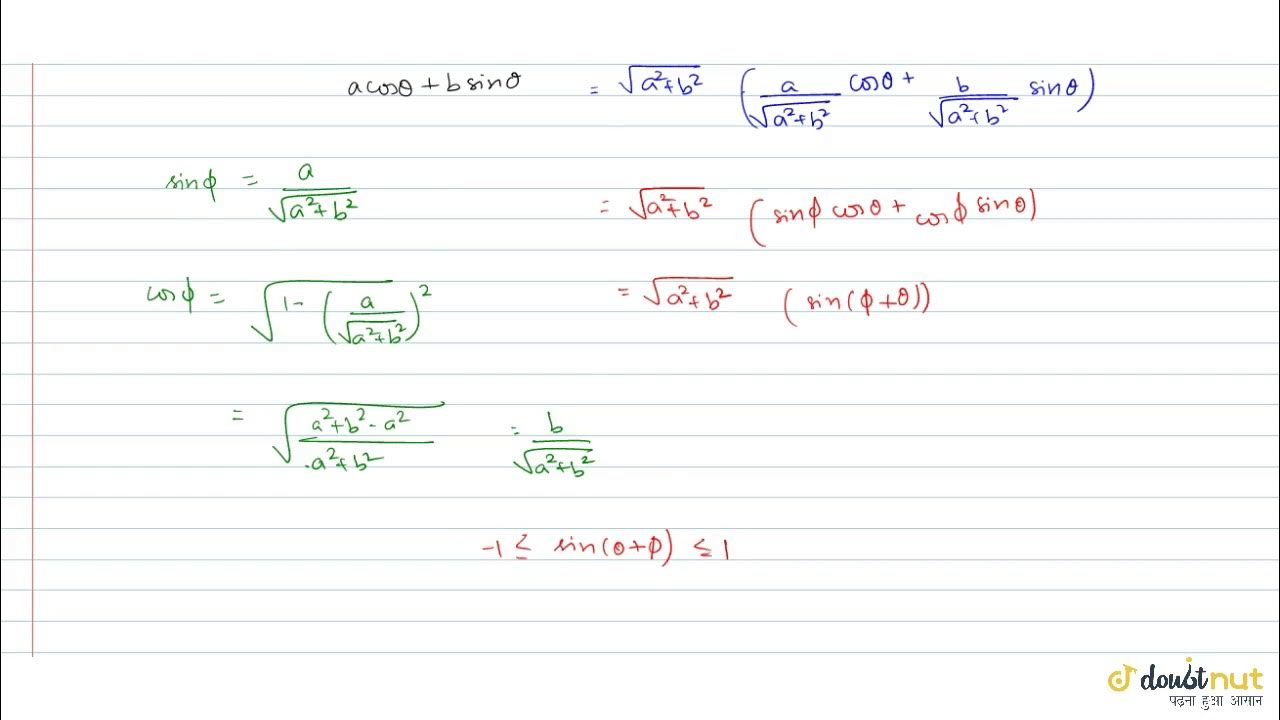 a cosθ + b sinθ = √(a²+b²) (a/√(a²+b²) cosθ + b/√(a²+b²) sinθ)
sinϕ = a/√(a²+b²)
= √(a²+b²) (sinϕ cosθ + cosϕ sinθ)
cosϕ = √(1 - (a/√(a²+b²))²)
= √(a²+b²) (sin(ϕ+θ))
= √((a²+b²-a²)/(a²+b²)) = b/√(a²+b²)
-1 ≤ sin(θ+ϕ) ≤ 1
doubtnut
पढ़ना हुआ आसान